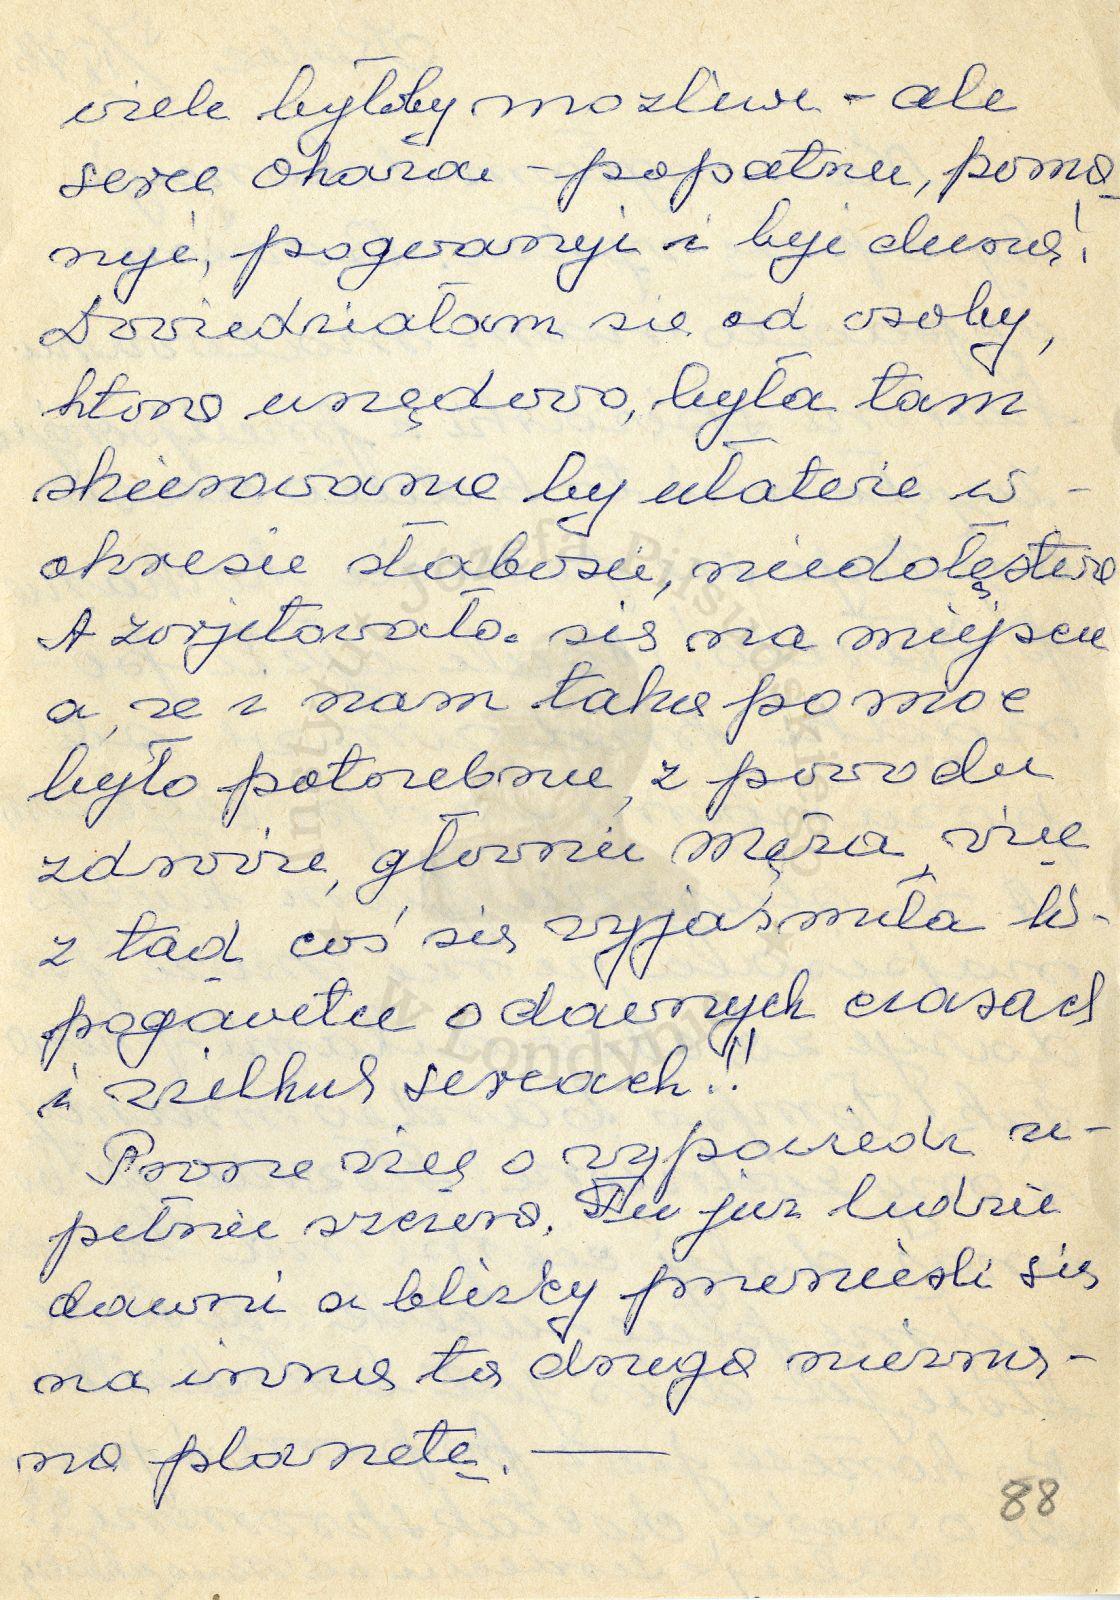 wiele byłoby możliwe - ale
serce okazać - popatrzeć, pomó
Dowiedziałam się od osoby,
która urzędowo, była tam
skierowana by ułatwić w -
okresie słabości, niedołęstwa
A zwizytowała się na miejscu
a, że i nam taka pomoc
było potrzebna, z powodu
zdrowia, głównie męża, więc
z tąd coś się wyjaśniła w -
pogawętce o dawnych czasach
i wielkich sercach!!
Proszę więc o wypowiedź zu-
pełnie szczerą. Tu już ludzie
dawni a bliscy przenieśli się
na inną tą drugą niezna-
ną planetę. —
88
Instytut Józefa Piłsudskiego
w Londynie